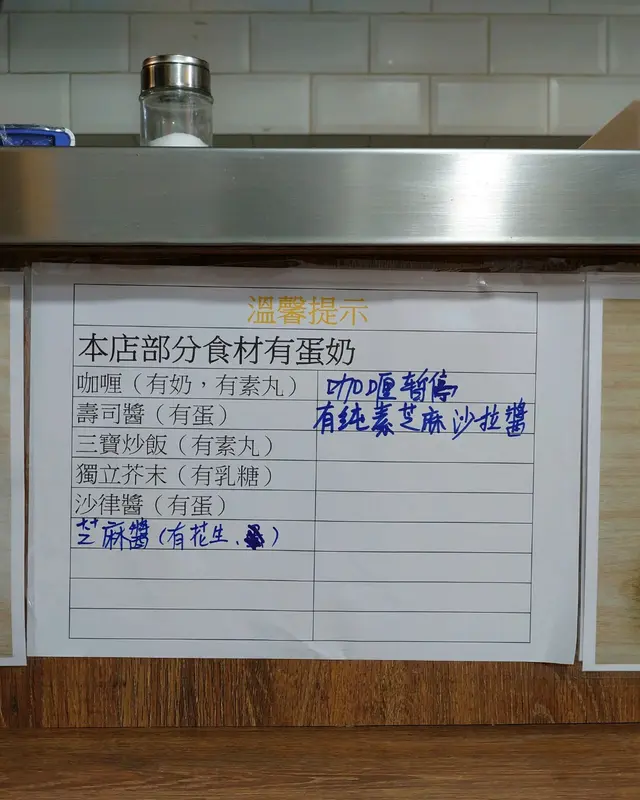 溫馨提示
本店部分食材有蛋奶
咖喱（有奶，有素丸）
咖喱暫停
壽司醬（有蛋）
有純素芝麻沙拉醬
三寶炒飯（有素丸）
獨立芥末（有乳糖）
沙律醬（有蛋）
芝麻醬（有花生、）